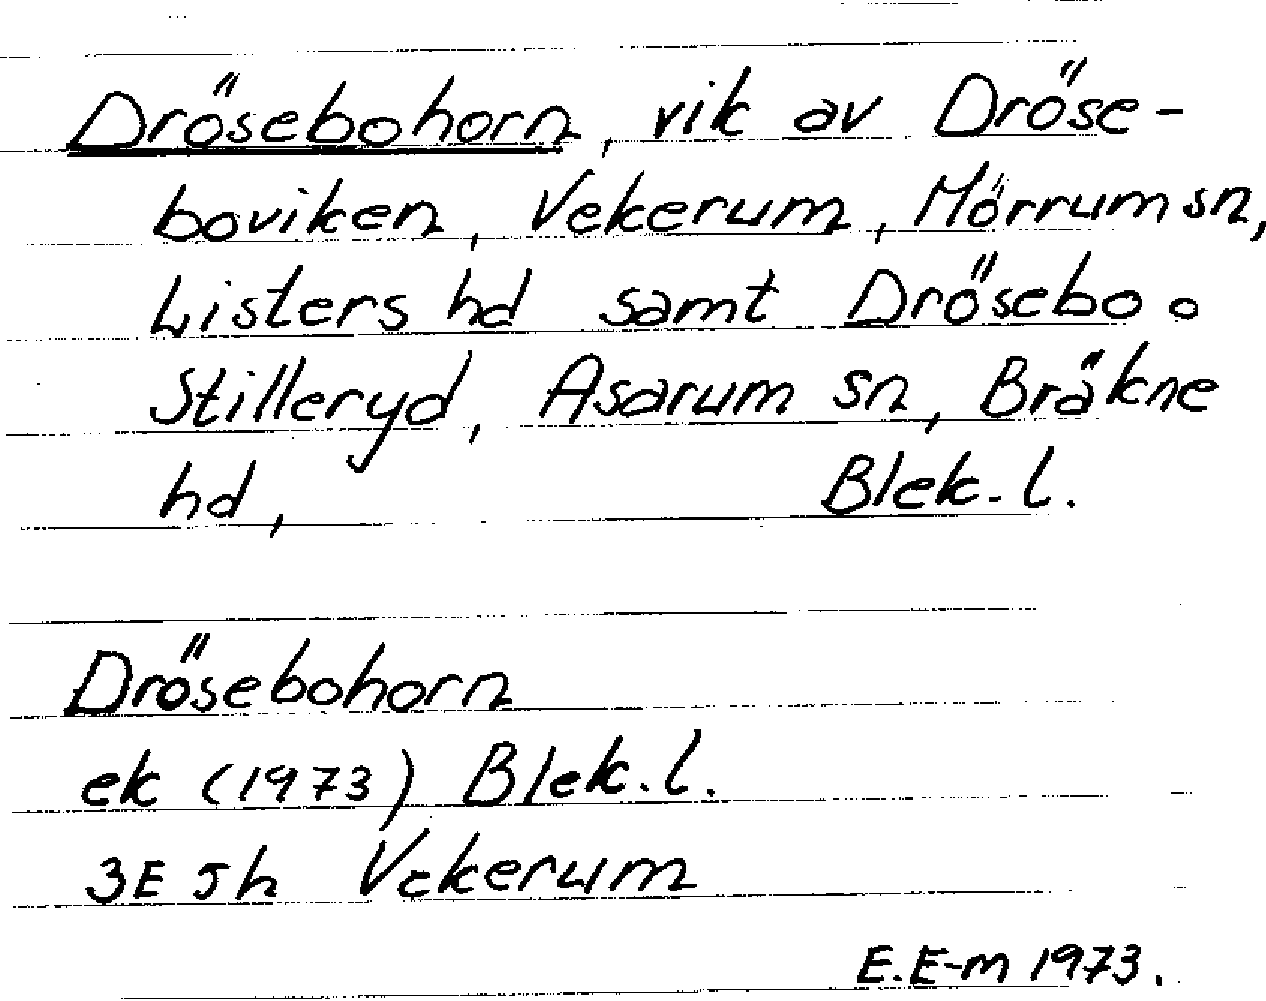 Drösebohorn, vik av Dröse-
boviken, Vekerum, Mörrum sn,
Listers hd samt Drösebo o
Stilleryd, Asarum sn, Bräkne
hd, Blek. l.
Drösebohorn
ek (1973) Blek. l.
3E 5h Vekerum
E.E-m 1973.